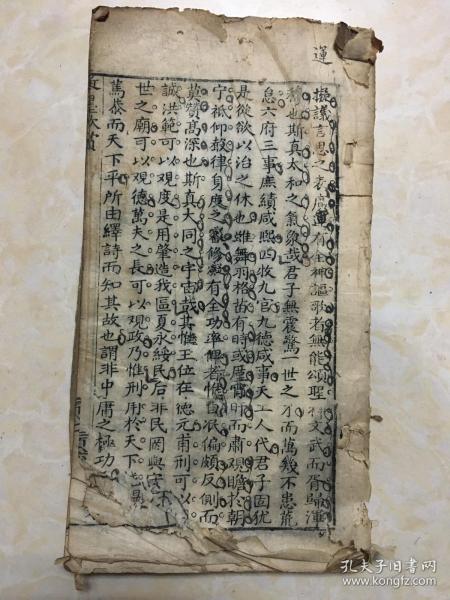 運
擬議言思之表
有全神謳歌者無能頌聖
文武而
穆也斯真太和之氣象哉君子無震驚一世之才而萬幾不患荒
怠六府三事庶績咸熙四牧九官九德咸事天工人代君子固優
是從欲以治之休也雖舞羽格苗有時或
宵旰而肅觀瞻於朝
寧祗仰
律身度之
修
有全功
偏頗反側而
莫贊高深也斯真大同之宇宙哉其惟王位在德元甫刑可以
誠洪範可以觀度是用肇造我區夏永綏民后非民罔與
不
世之廟可以觀德萬夫之長可以觀政乃惟刑用於天下
篤恭而天下平所由繹詩而知其故也謂非中庸之極功
孔夫子旧书网
www.kongfz.com